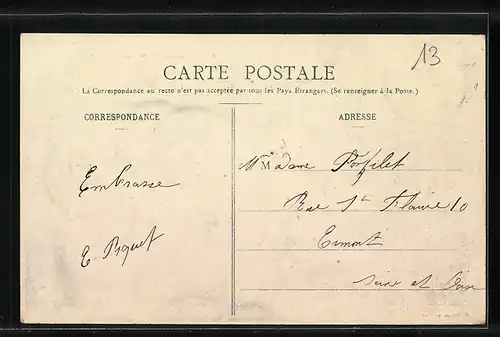 13
CARTE POSTALE
La Correspondance au recto n'est pas acceptée par tous les Pays Étrangers. (Se renseigner à la Poste.)
CORRESPONDANCE
ADRESSE
Embrasse
E. Piquet
Madame
Rue St Flaive 10
Ermont
Seine et Oise